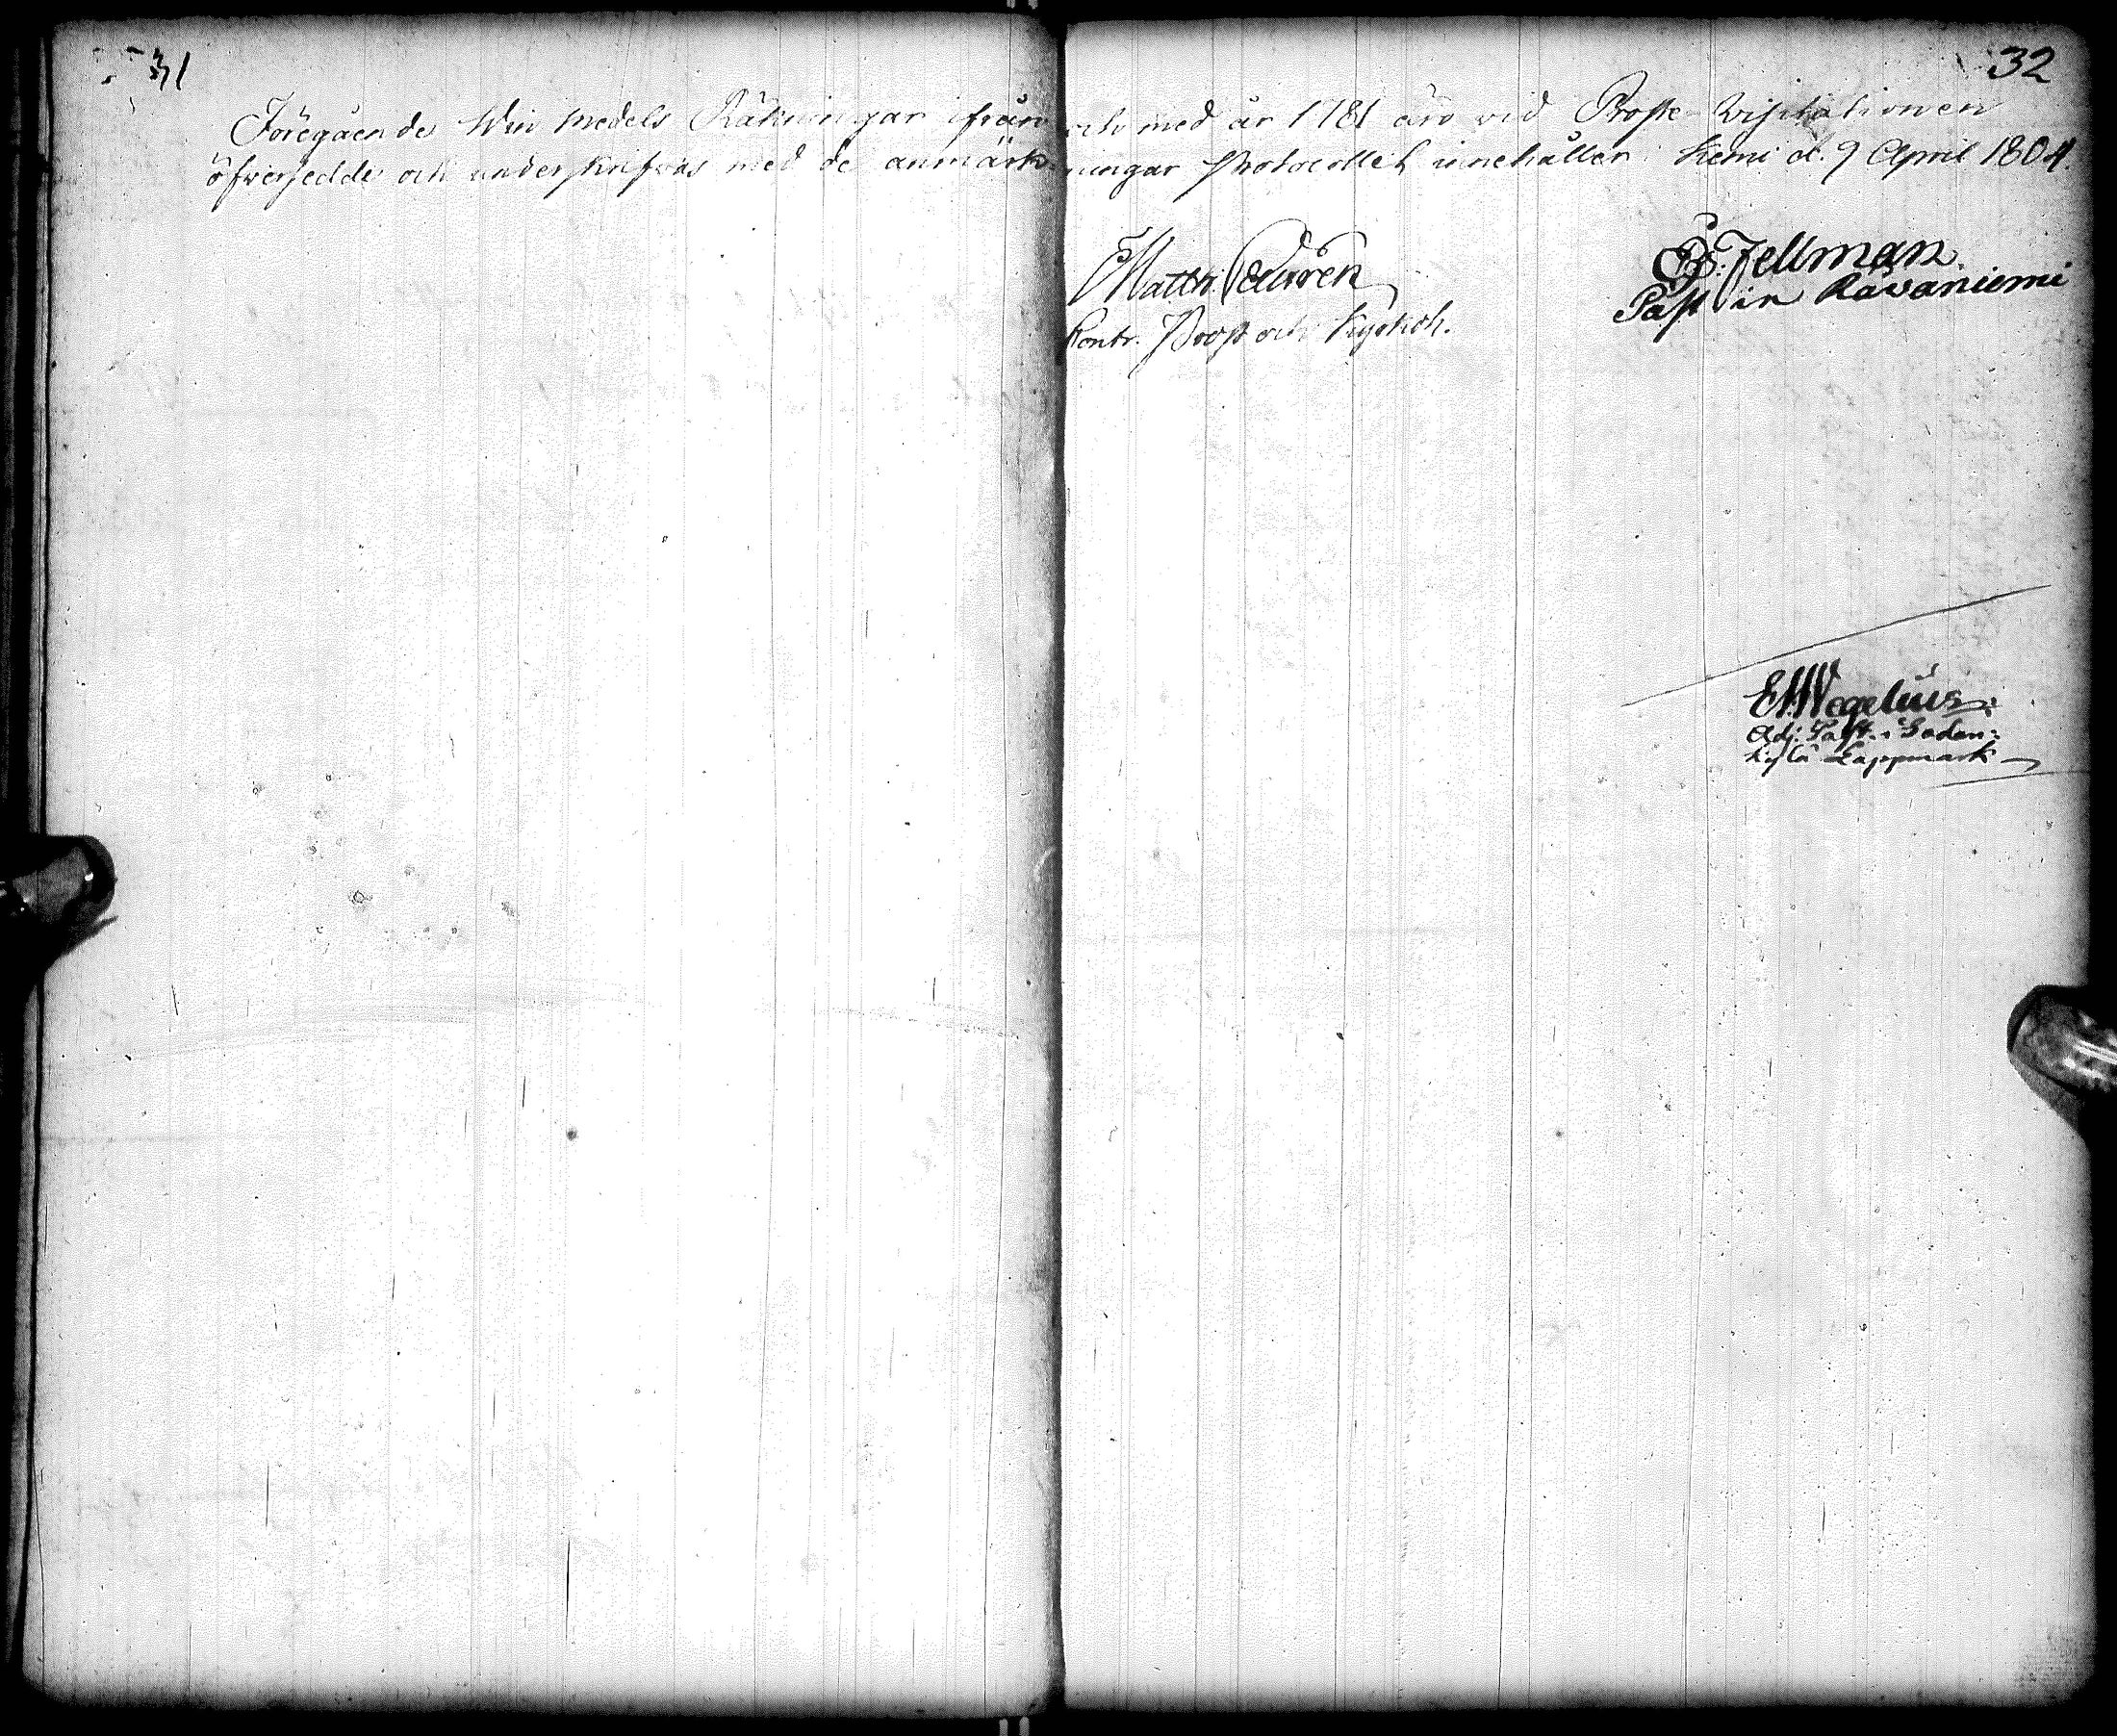 31
32
Föregåendes Win medels Räkningar ifrån och med år 1781 äro vid Proste Visitationen
öfversedde och underskrifvas med de anmärkningar Protocollet innehåller. Kemi d. 9 April 1804.
Matth.
Contr. Prost och Kyrkoh.
Fellman
Past in Råvaniemi
E. Wegelius
Adj. Past. i Sodan=
kylä Lappmark